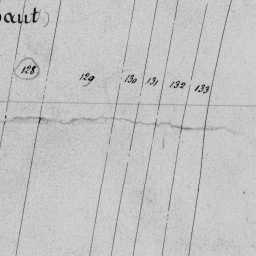 aut)
128 129 130 131 132 133